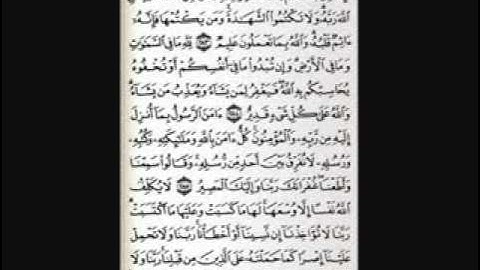 ٱللَّهَ رَبَّهُۥ وَلَا تَكْتُمُوا۟ ٱلشَّهَٰدَةَ وَمَن يَكْتُمْهَا فَإِنَّهُۥٓ
ءَاثِمٌ قَلْبُهُۥ وَٱللَّهُ بِمَا تَعْمَلُونَ عَلِيمٌ ٢٨٣ لِّلَّهِ مَا فِى ٱلسَّمَٰوَٰتِ
وَمَا فِى ٱلْأَرْضِ وَإِن تُبْدُوا۟ مَا فِىٓ أَنفُسِكُمْ أَوْ تُخْفُوهُ
يُحَاسِبْكُم بِهِ ٱللَّهُ فَيَغْفِرُ لِمَن يَشَآءُ وَيُعَذِّبُ مَن يَشَآءُ
وَٱللَّهُ عَلَىٰ كُلِّ شَىْءٍ قَدِيرٌ ٢٨٤ ءَامَنَ ٱلرَّسُولُ بِمَآ أُنزِلَ
إِلَيْهِ مِن رَّبِّهِۦ وَٱلْمُؤْمِنُونَ كُلٌّ ءَامَنَ بِٱللَّهِ وَمَلَٰٓئِكَتِهِۦ وَكُتُبِهِۦ
وَرُسُلِهِۦ لَا نُفَرِّقُ بَيْنَ أَحَدٍ مِّن رُّسُلِهِۦ وَقَالُوا۟ سَمِعْنَا
وَأَطَعْنَا غُفْرَانَكَ رَبَّنَا وَإِلَيْكَ ٱلْمَصِيرُ ٢٨٥ لَا يُكَلِّفُ
ٱللَّهُ نَفْسًا إِلَّا وُسْعَهَا لَهَا مَا كَسَبَتْ وَعَلَيْهَا مَا ٱكْتَسَبَتْ
رَبَّنَا لَا تُؤَاخِذْنَآ إِن نَّسِينَآ أَوْ أَخْطَأْنَا رَبَّنَا وَلَا تَحْمِلْ
عَلَيْنَآ إِصْرًا كَمَا حَمَلْتَهُۥ عَلَى ٱلَّذِينَ مِن قَبْلِنَا رَبَّنَا وَلَا